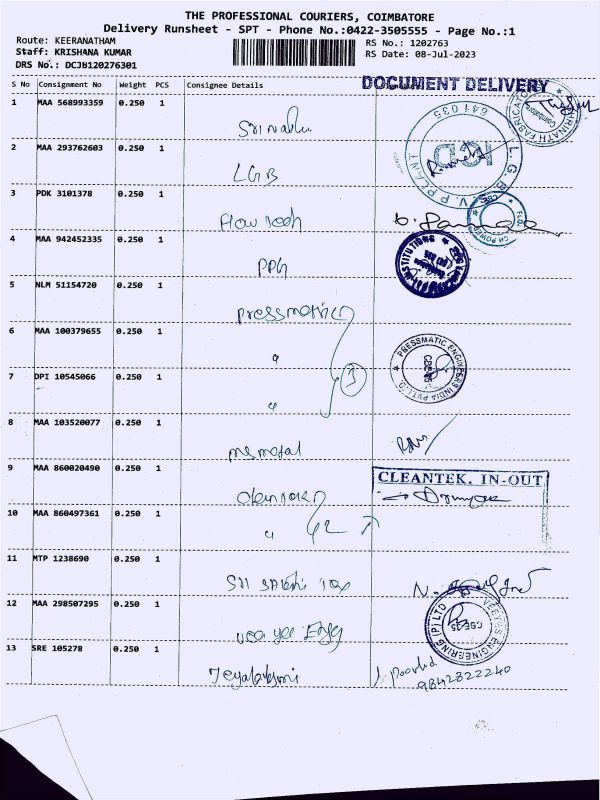 THE PROFESSIONAL COURIERS, COIMBATORE
Delivery Runsheet - SPT - Phone No.:0422-3505555 - Page No.:1
Route: KEERANATHAM
RS No.: 1202763
Staff: KRISHANA KUMAR
RS Date: 08-Jul-2023
DRS No.: DCJB120276301
DOCUMENT DELIVERY
S No Consignment No Weight PCS Consignee Details
1 MAA 568993359 0.250 1
641 035
L. G. B. V. P PLANT
2 MAA 293762603 0.250 1 LGB
3 PDK 3101378 0.250 1 Flow Tech
4 MAA 942452335 0.250 1 PPG
INSTITUTIONS
5 NLM 51154720 0.250 1 Pressmatic
6 MAA 100379655 0.250 1 "
PRESSMATIC ENGINEERS INDIA PVT.LTD.
7 DPI 10545066 0.250 1 " 3
8 MAA 103520077 0.250 1
9 MAA 860020490 0.250 1
CLEANTEK. IN-OUT
10 MAA 860497361 0.250 1 "
11 MTP 1238690 0.250 1 Sri Sakthi Tex
12 MAA 298507295 0.250 1 Vee yes Engg
VEEYES ENGINEERING (P) LTD
CBE-35
13 SRE 105278 0.250 1 Jeyalakshmi
9842822240